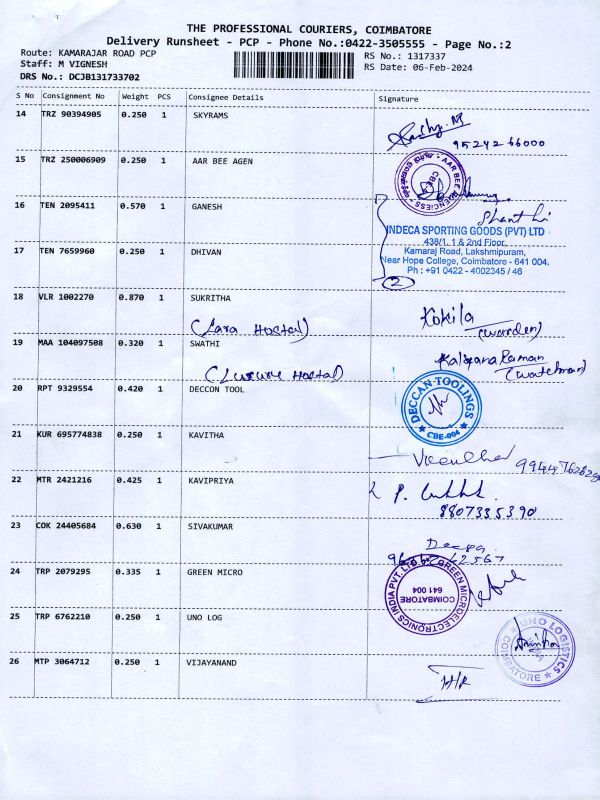 THE PROFESSIONAL COURIERS, COIMBATORE
Delivery Runsheet - PCP - Phone No.:0422-3505555 - Page No.:2
Route: KAMARAJAR ROAD PCP
Staff: M VIGNESH
DRS No.: DCJB131733702
RS No.: 1317337
RS Date: 06-Feb-2024
S No Consignment No Weight PCS Consignee Details Signature
14 TRZ 90394905 0.250 1 SKYRAMS
9524266000
15 TRZ 250006909 0.250 1 AAR BEE AGEN
AAR BEE AGENCIESS
16 TEN 2095411 0.570 1 GANESH
Shanthi
INDECA SPORTING GOODS (PVT) LTD
438/1, 1 & 2nd Floor,
Kamaraj Road, Lakshmipuram,
Near Hope College, Coimbatore - 641 004.
Ph : +91 0422 - 4002345 / 46
2
17 TEN 7659960 0.250 1 DHIVAN
18 VLR 1002270 0.870 1 SUKRITHA
(Lara Hostal) Kokila
(warden)
19 MAA 104097508 0.320 1 SWATHI
(Luxure Hostal) Kalyana Raman
(watchman)
20 RPT 9329554 0.420 1 DECCON TOOL
DECCAN TOOLINGS
CBE-004
21 KUR 695774838 0.250 1 KAVITHA
22 MTR 2421216 0.425 1 KAVIPRIYA
8807335390
23 COK 24405684 0.630 1 SIVAKUMAR
24 TRP 2079295 0.335 1 GREEN MICRO
GREEN MICROELECTRONICS INDIA PVT. LTD
COIMBATORE
641 004
25 TRP 6762210 0.250 1 UNO LOG
UNO LOGISTICS
COIMBATORE
26 MTP 3064712 0.250 1 VIJAYANAND